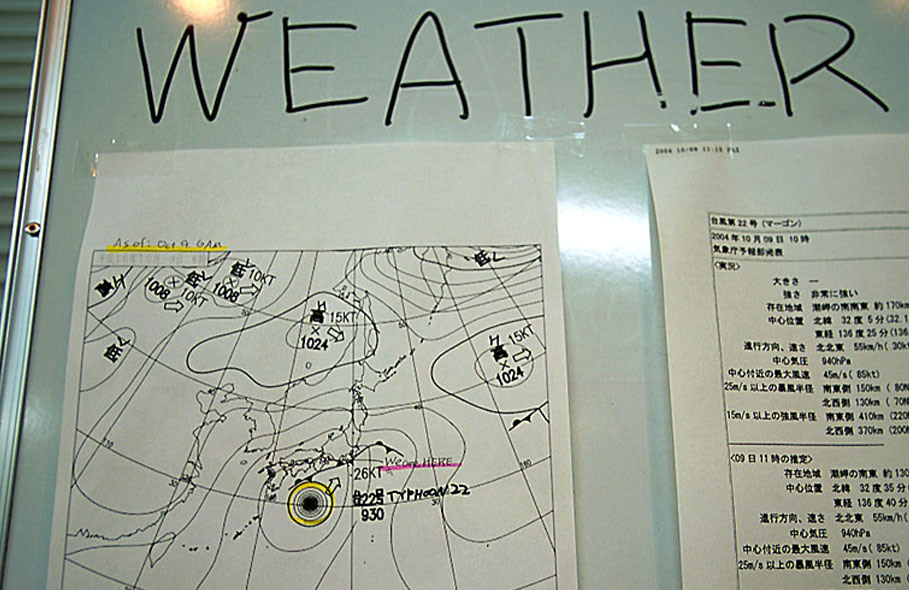 WEATHER
As of: Oct 9 6AM
1008
10KT
低
1008
10KT
低
低
高
15KT
1024
高
15KT
1024
We are HERE
26KT
台22号 TYPHOON 22
930
2004 10/09 11:16 FAX
台風第22号 (マーゴン)
2004年10月09日10時
気象庁予報部発表
<実況>
大きさ ―
強さ 非常に強い
存在地域 潮岬の南南東 約170km
中心位置 北緯 32度 5分(32.1
東経 136度25分(136
進行方向、速さ 北北東 55km/h( 30kt
中心気圧 940hPa
中心付近の最大風速 45m/s( 85kt)
25m/s以上の暴風半径 南東側 150km ( 80N
北西側 130km ( 70N
15m/s以上の強風半径 南東側 410km (220N
北西側 370km (200N
<09日11時の推定>
存在地域 潮岬の南東 約130
中心位置 北緯 32度35分(
東経 136度40分
進行方向、速さ 北北東 55km/h(
中心気圧 940hPa
中心付近の最大風速 45m/s( 85kt)
25m/s以上の暴風半径 南東側 150km (
北西側 130km (